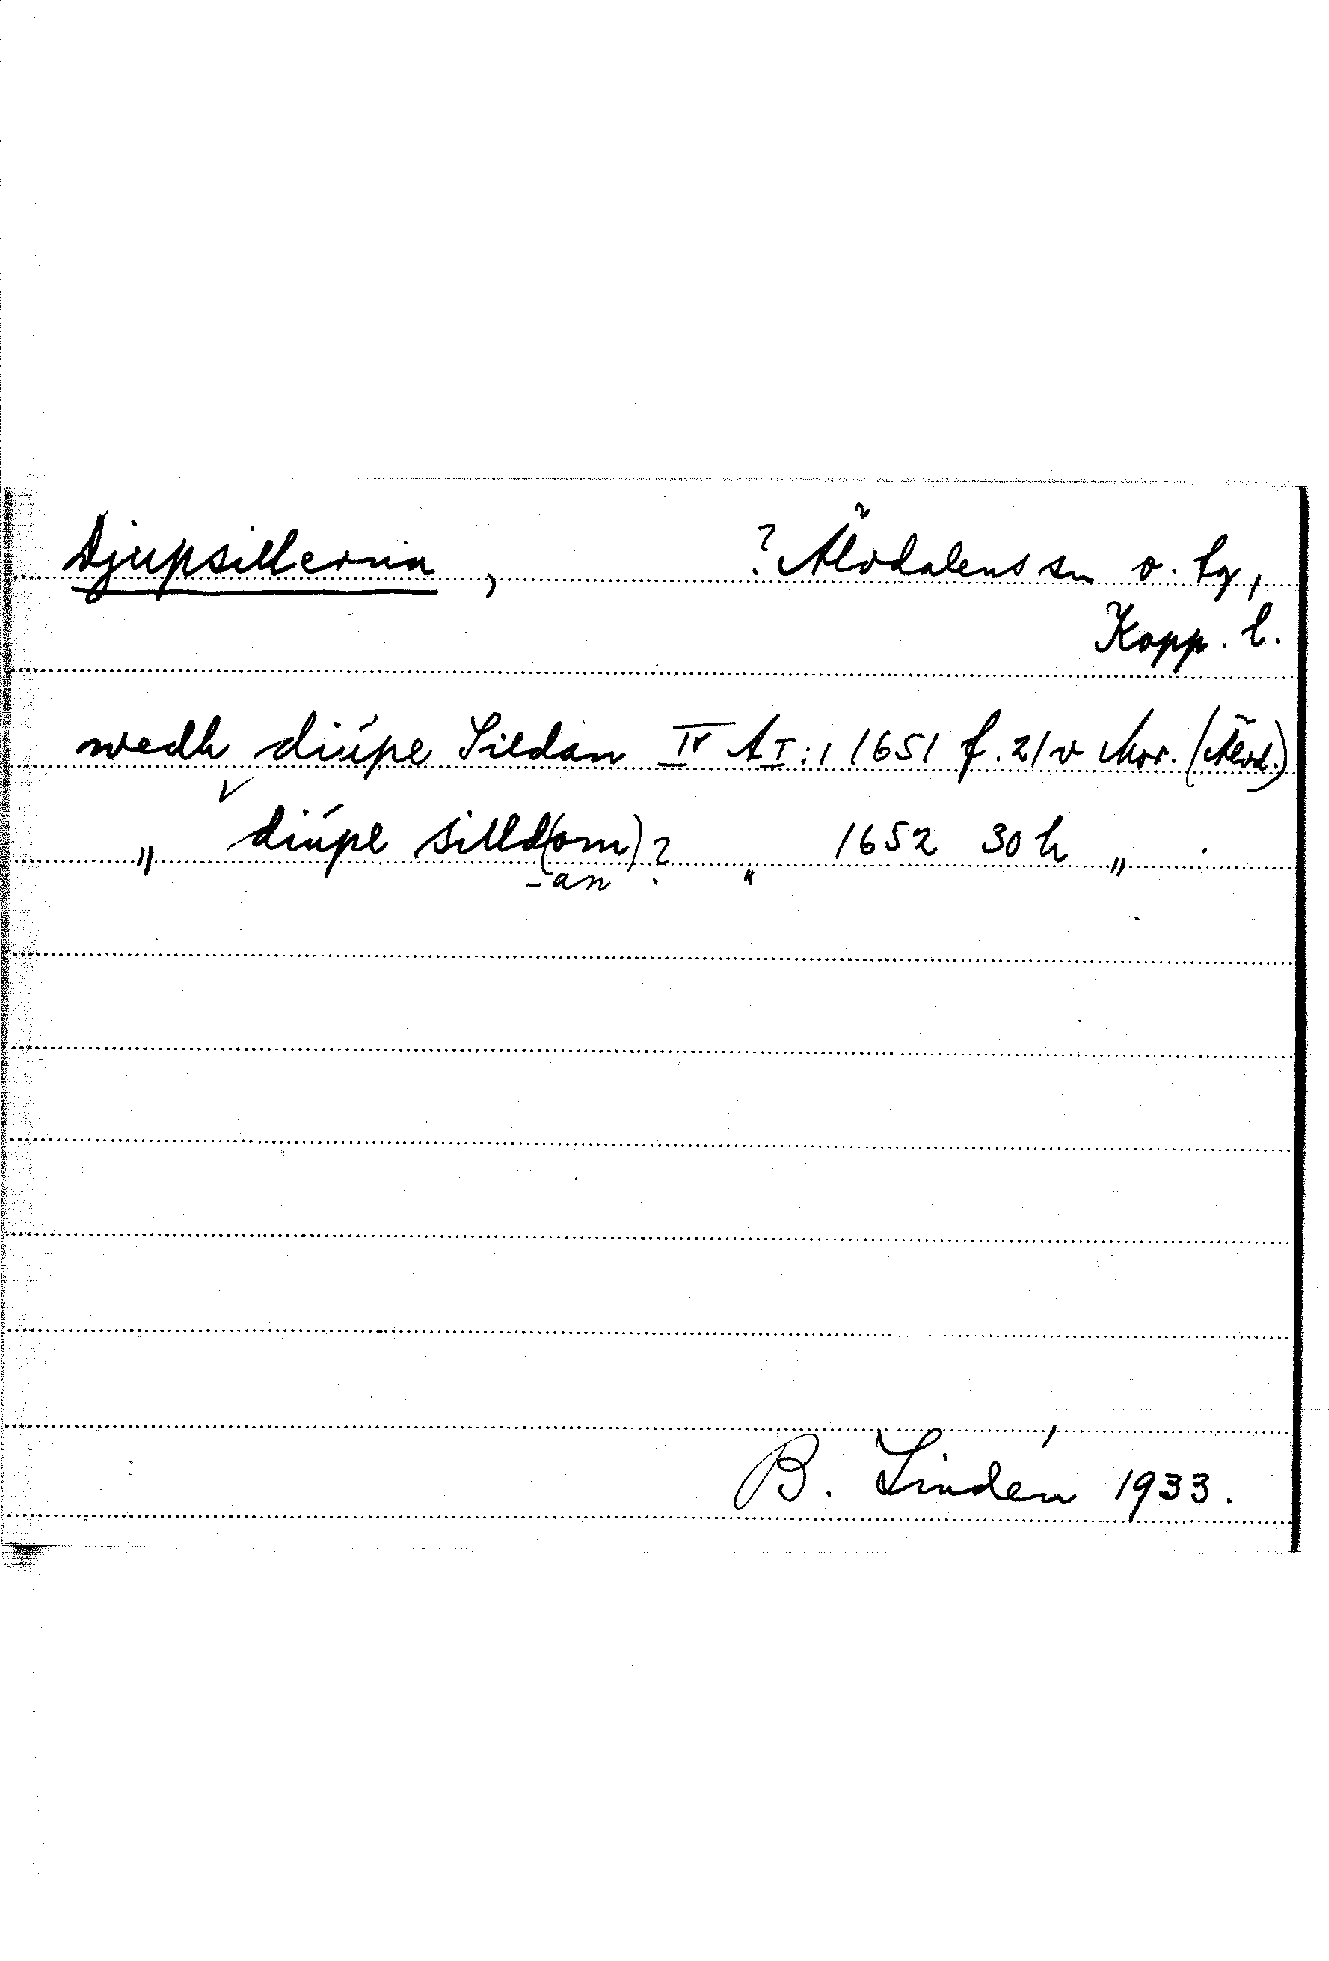 Djupsillerna, ? Älvdalens sn o. tg,
Kopp. l.
wedh diúpe Sildan IV A I:1 1651 f. 21 v Mor. (Älvd.)
" diúpe silld(om)? " 1652 30 h "
-an
B. Lindén 1933.